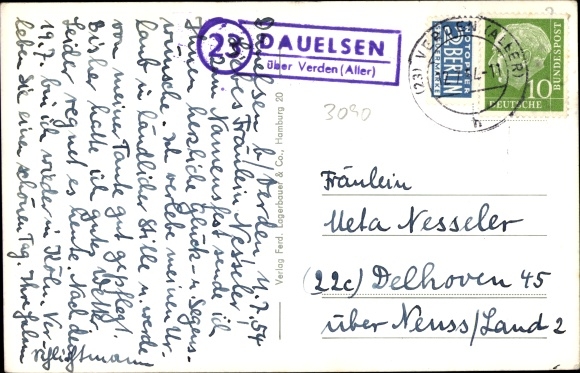 Dauelsen b/Verden 11.7.54
Liebes Fräulein Nesseler!
Zu Ihrem Namensfest sende ich
Ihnen herzliche Glück- u. Segens-
wünsche. Ich verlebe meinen Ur-
laub in ländlicher Stille u. werde
von meiner Tante gut gepflegt.
Bisher hatte ich gutes Wetter.
Leider regnet es heute. Nach dem
19.7. bin ich wieder in Köln. Ver-
leben Sie einen schönen Tag. Ihre
23
DAUELSEN
über Verden (Aller)
NOTOPFER
2 BERLIN
STEUERMARKE
(23) VERDEN (ALLER)
DEUTSCHE
BUNDESPOST
10
h
3090
Verlag Ferd. Lagerbauer & Co., Hamburg 20
Fräulein
Meta Nesseler
(22c) Delhoven 45
über Neuss/Land 2